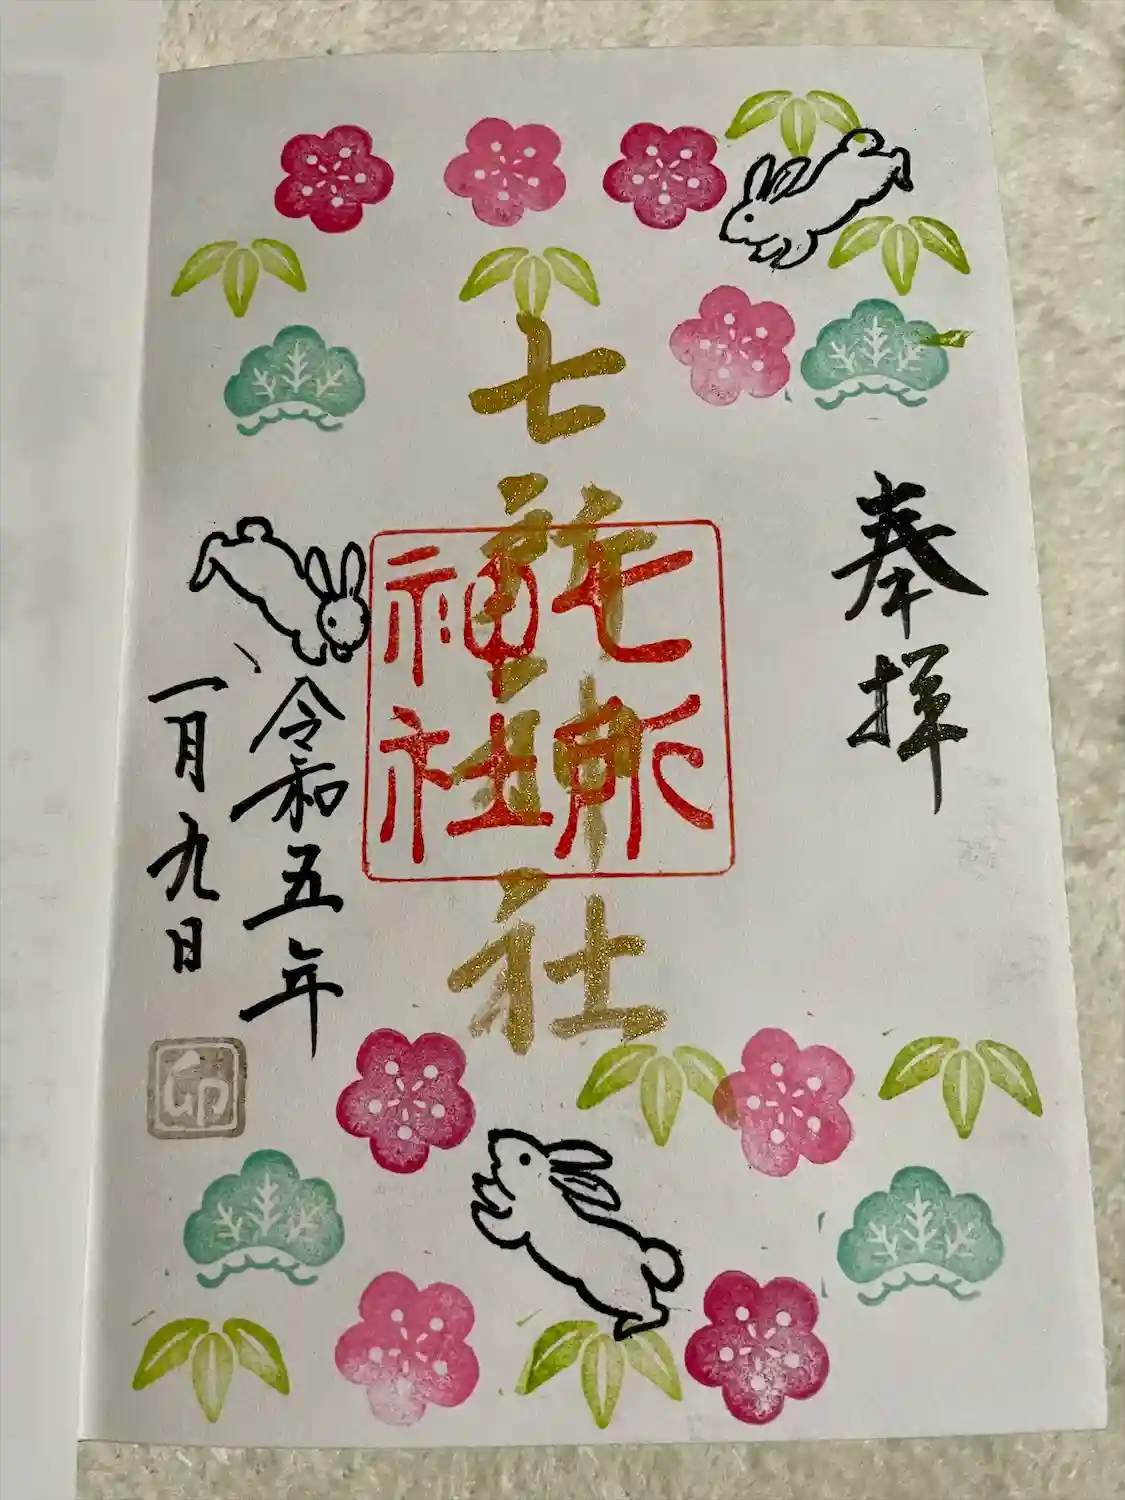 奉拝
七所神社
七所
神社
令和五年
一月九日
卯